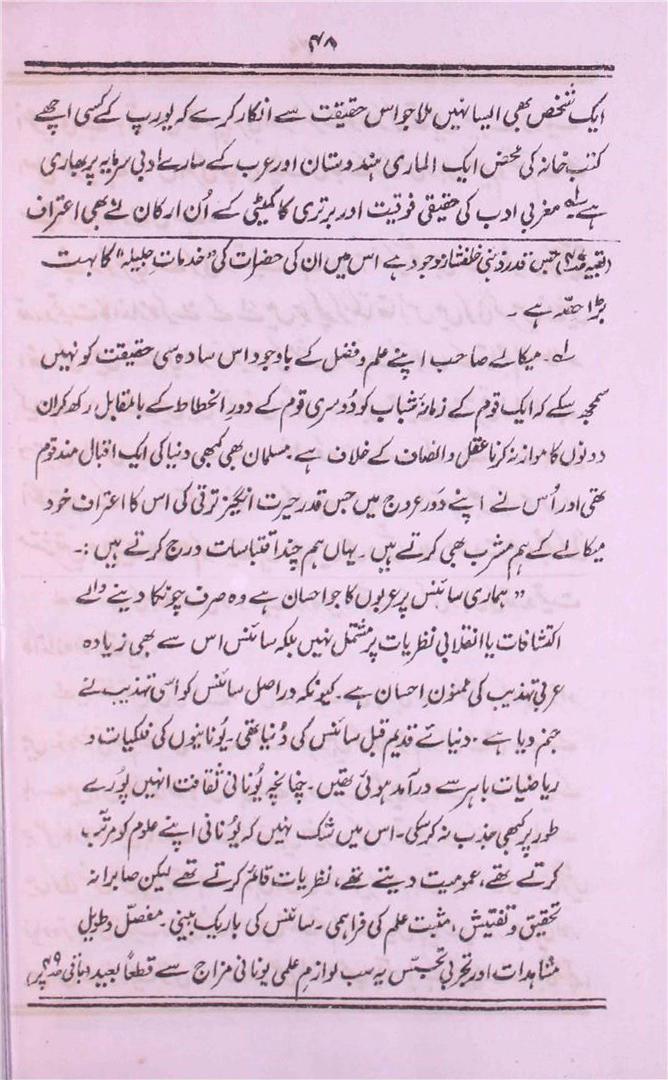 ۴۸
ایک شخص بھی ایسا نہیں ملا جو اس حقیقت سے انکار کرے کہ یورپ کے کسی اچھے
کتب خانہ کی محض ایک الماری ہندوستان اور عرب کے سارے ادبی سرمایہ پر بھاری
ہے لہ مغربی ادب کی حقیقی فوقیت اور برتری کا کمیٹی کے اُن ارکان نے بھی اعتراف
(بقیہ صـ۴۷) جس قدر ذہنی خلفشار موجود ہے اس میں ان کی حضرات کی "خدماتِ جلیلہ" کا بہت
بڑا حصّہ ہے ۔
لہ۔ میکالے صاحب اپنے علم و فضل کے باوجود اس سادہ سی حقیقت کو نہیں
سمجھ سکے کہ ایک قوم کے زمانۂ شباب کو دُوسری قوم کے دورِ انحطاط کے بالمقابل رکھ کر ان
دونوں کا موازنہ کرنا عقل و انصاف کے خلاف ہے۔ مسلمان بھی کبھی دنیا کی ایک اقبال مند قوم
تھی اور اُس نے اپنے دَورِ عروج میں جس قدر حیرت انگیز ترقی کی اس کا اعتراف خود
میکالے کے ہم مشرب بھی کرتے ہیں ۔ یہاں ہم چند اقتباسات درج کرتے ہیں :۔
" ہماری سائنس پر عربوں کا جو احسان ہے وہ صرف چونکا دینے والے
اکتشافات یا انقلابی نظریات پر مشتمل نہیں بلکہ سائنس اس سے بھی زیادہ
عربی تہذیب کی ممنونِ احسان ہے ۔ کیونکہ دراصل سائنس کو اسی تہذیب نے
جنم دیا ہے ۔ دنیائے قدیم قبل سائنس کی دُنیا تھی ۔ یُونانیوں کی فلکیات و
ریاضیات باہر سے درآمد ہوئی تھیں ۔ چنانچہ یُونانی ثقافت انہیں پُورے
طور پر کبھی جذب نہ کر سکی ۔ اس میں شک نہیں کہ یُونانی اپنے علوم کو مرتّب
کرتے تھے، عمومیت دیتے تھے، نظریات قائم کرتے تھے لیکن صابرانہ
تحقیق و تفتیش ، مثبت علم کی فراہمی ۔ سائنس کی باریک بینی ۔ مفصّل و طویل
مشاہدات اور تجربی تجسّس یہ سب لوازمِ علمی یونانی مزاج سے قطعاً بعید (باقی صـ۴۹ پر)